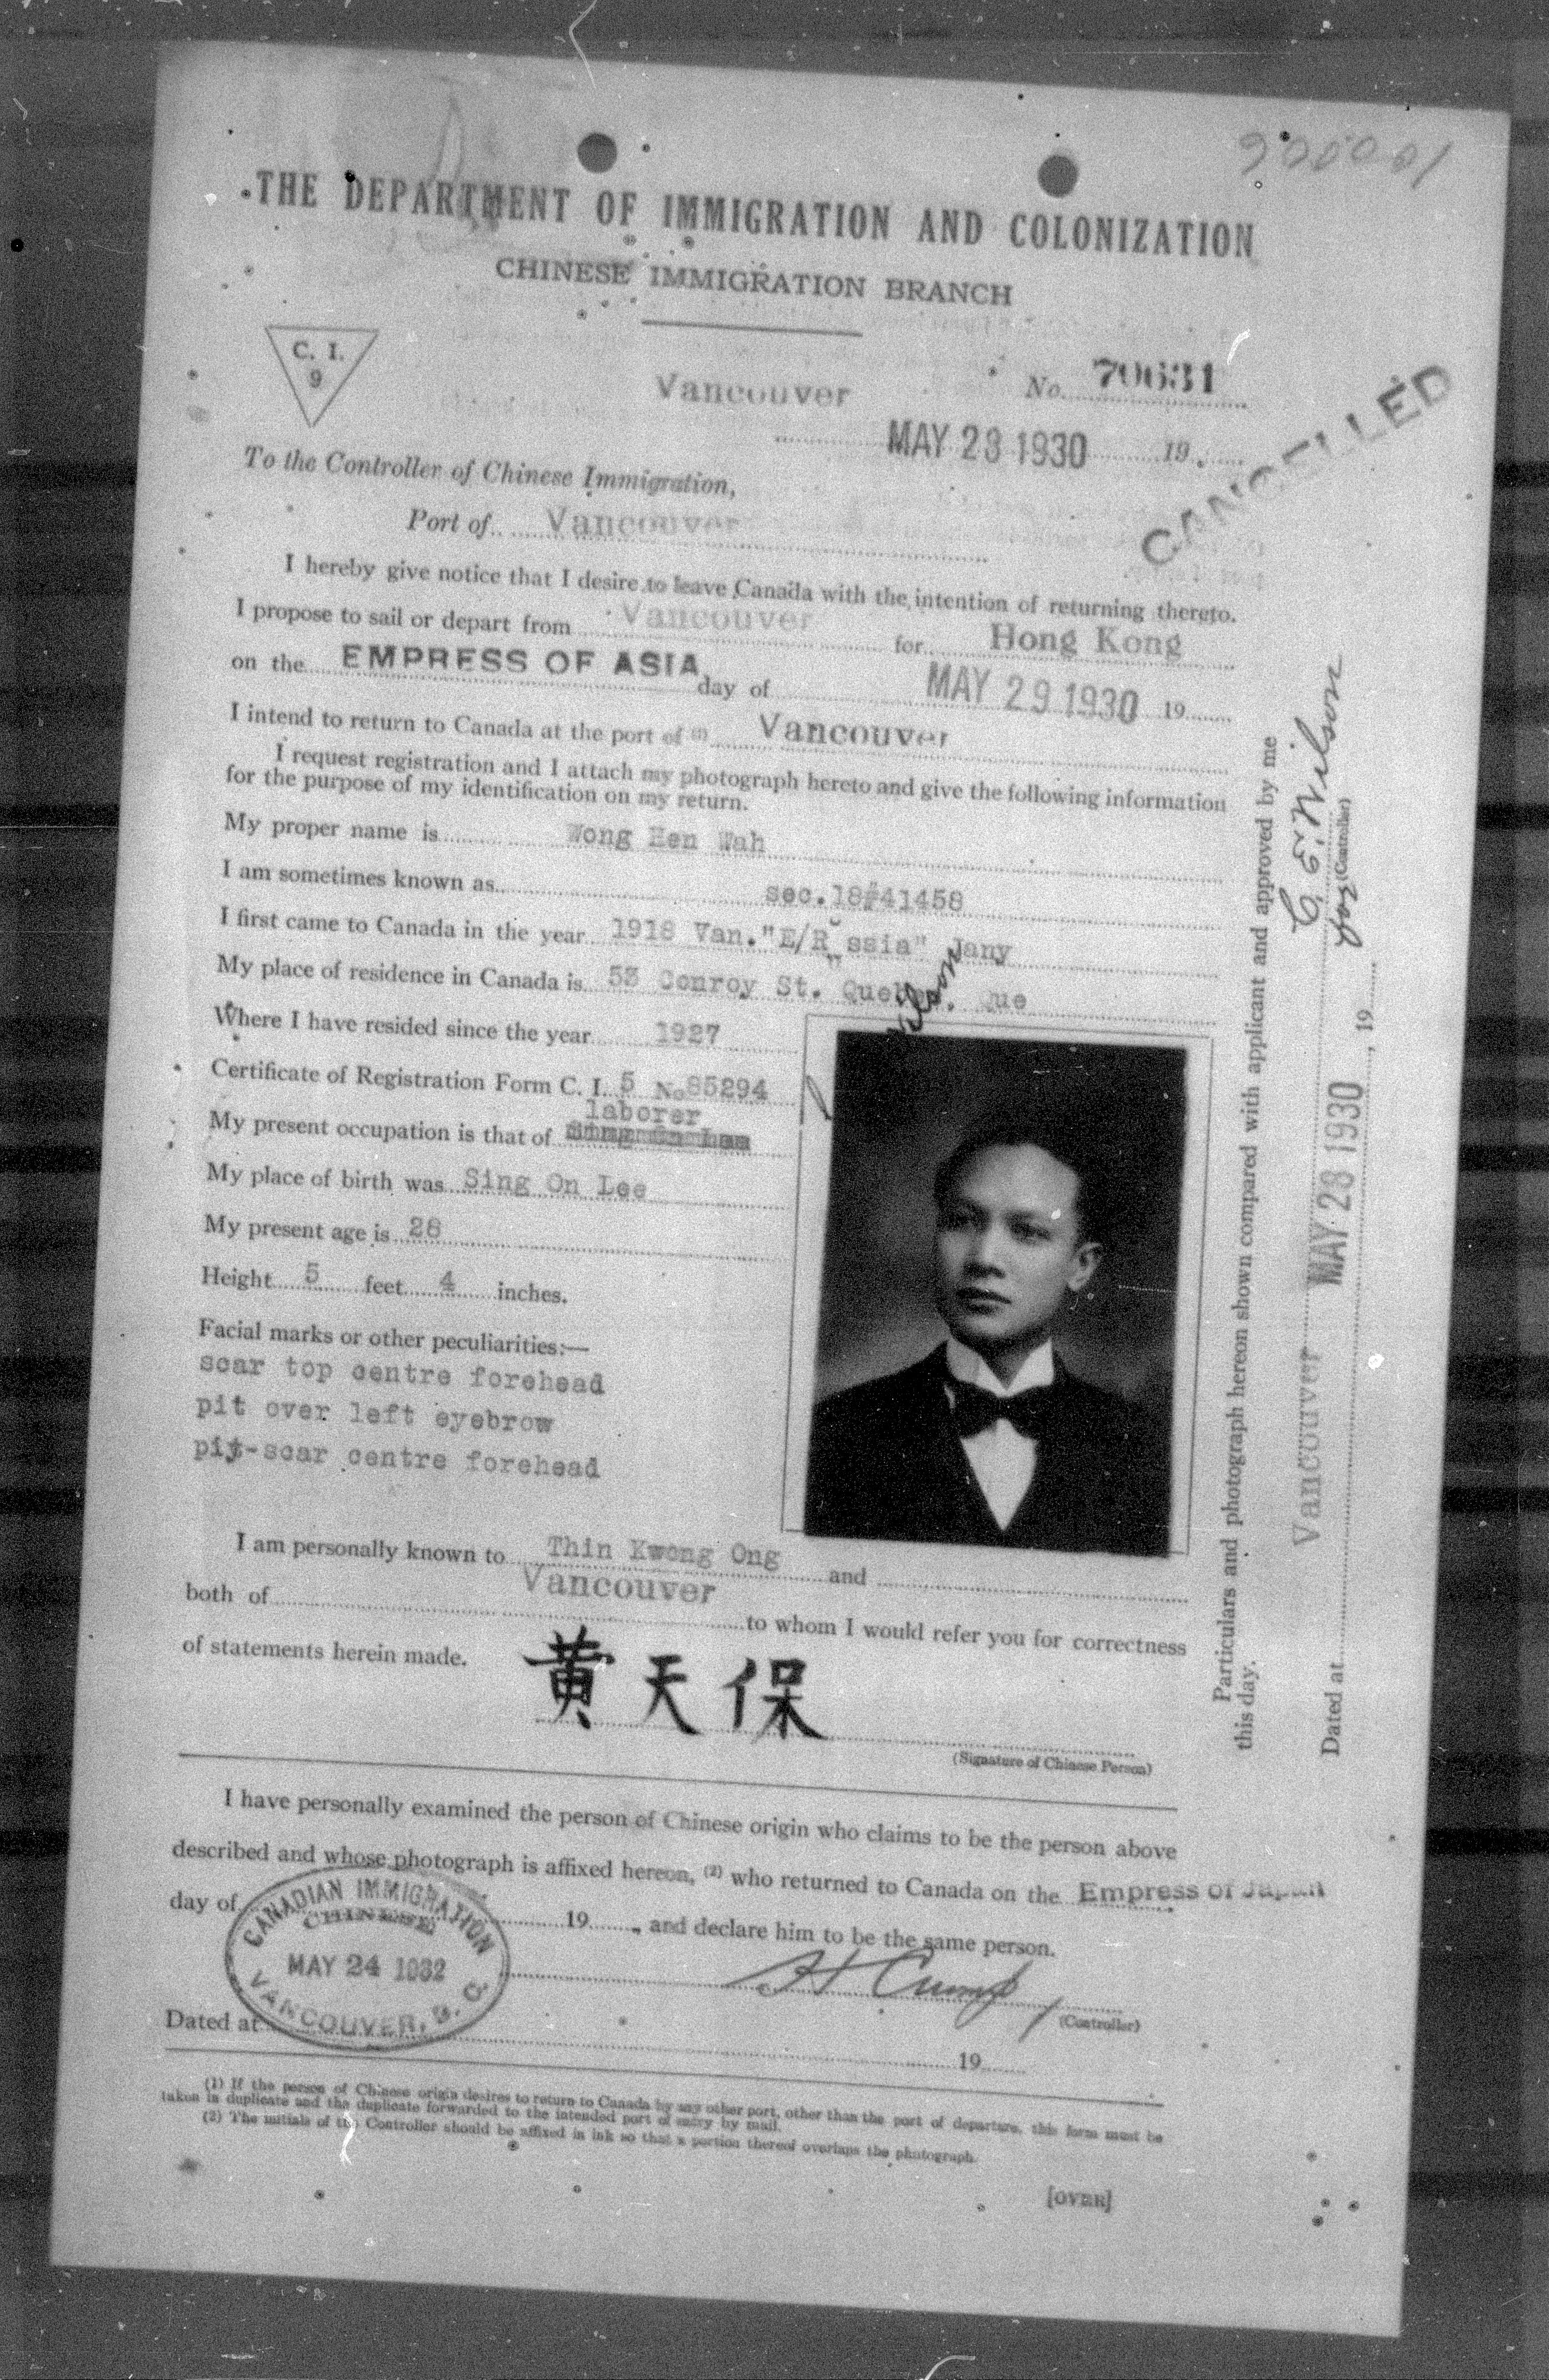 THE DEPARTMENT OF IMMIGRATION AND COLONIZATION
CHINESE IMMIGRATION BRANCH
C. I.
9
Vancouver
No. 70631
MAY 28 1930 19
CANCELLED
To the Controller of Chinese Immigration,
Port of Vancouver
I hereby give notice that I desire to leave Canada with the intention of returning thereto.
I propose to sail or depart from Vancouver for Hong Kong
on the EMPRESS OF ASIA day of MAY 29 1930 19
I intend to return to Canada at the port of (1) Vancouver
I request registration and I attach my photograph hereto and give the following information
for the purpose of my identification on my return.
My proper name is Wong Hen Wah
I am sometimes known as sec.18#41458
I first came to Canada in the year 1918 Van. "E/Russia" Jany
My place of residence in Canada is 53 Conroy St. Quebec. Que
Where I have resided since the year 1927
Certificate of Registration Form C. I. 5 No 85294
laborer
My present occupation is that of
My place of birth was Sing On Lee
My present age is 28
Height 5 feet 4 inches.
Facial marks or other peculiarities:—
scar top centre forehead
pit over left eyebrow
pit-scar centre forehead
I am personally known to Thin Kwong Ong and
both of Vancouver to whom I would refer you for correctness
of statements herein made.
黄天保
(Signature of Chinese Person)
I have personally examined the person of Chinese origin who claims to be the person above
described and whose photograph is affixed hereon, (2) who returned to Canada on the Empress of Japan
day of 19 , and declare him to be the same person.
CANADIAN IMMIGRATION
CHINESE
MAY 24 1932
VANCOUVER, B. C.
(Controller)
Dated at 19
(1) If the person of Chinese origin desires to return to Canada by any other port, other than the port of departure, this form must be
taken in duplicate and the duplicate forwarded to the intended port of entry by mail.
(2) The initials of the Controller should be affixed in ink so that a portion thereof overlaps the photograph.
[OVER]
Particulars and photograph hereon shown compared with applicant and approved by me
this day.
C. E. Wilson
for (Controller)
Dated at Vancouver MAY 28 1930 , 19